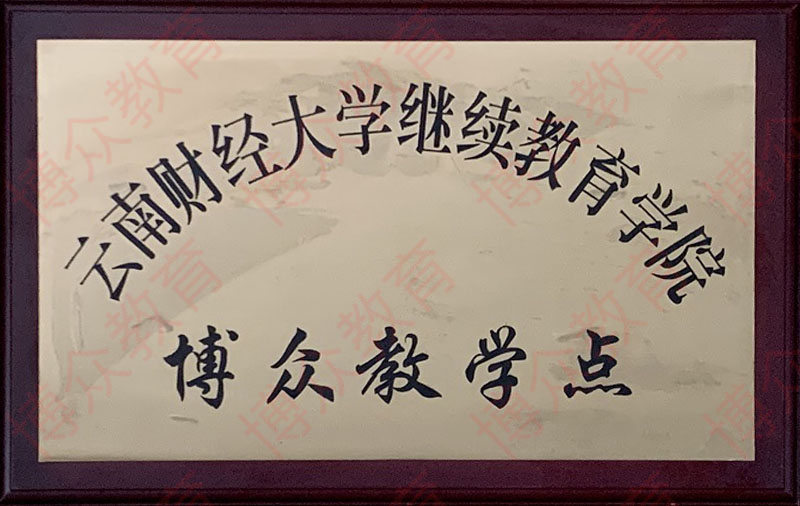 云南财经大学继续教育学院
博众教学点
博众教育
博众教育
博众教育
博众教育
博众教育
博众教育